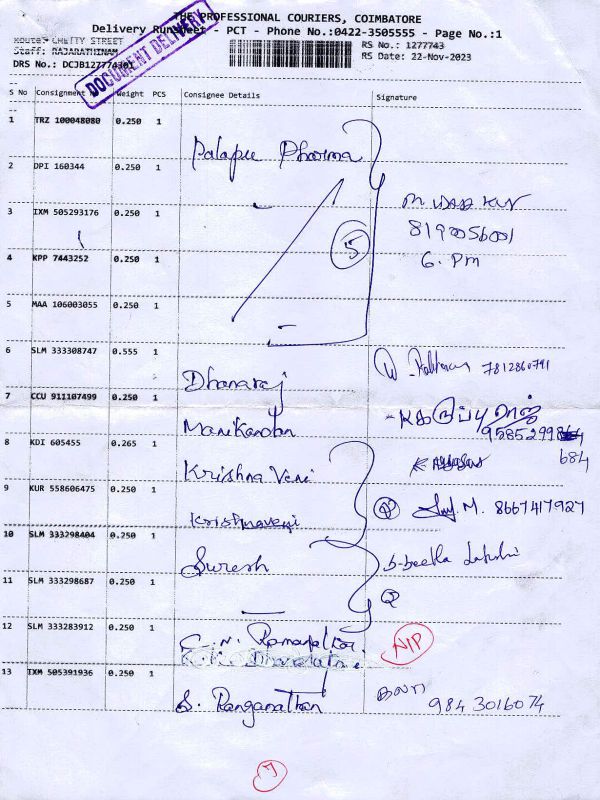 THE PROFESSIONAL COURIERS, COIMBATORE
Delivery Runsheet - PCT - Phone No.:0422-3505555 - Page No.:1
Route: CHETTY STREET
RS No.: 1277743
Staff: RAJARATHINAM
RS Date: 22-Nov-2023
DRS No.: DCJB127774301
DOCUMENT DELIVERY
S No Consignment Weight PCS Consignee Details Signature
1 TRZ 100048080 0.250 1
Palapee Pharma
2 DPI 160344 0.250 1
3 IXM 505293176 0.250 1
8190056001
5
6. Pm
4 KPP 7443252 0.250 1
5 MAA 106003055 0.250 1
6 SLM 333308747 0.555 1
7812860791
Dhanaraj
7 CCU 911107499 0.250 1
Manikandan
9585299864
684
8 KDI 605455 0.265 1
Krishna Veni
9 KUR 558606475 0.250 1
M. 8667417927
Krishnaveni
10 SLM 333298404 0.250 1
Suresh
11 SLM 333298687 0.250 1
12 SLM 333283912 0.250 1
C. N.
NIP
13 IXM 505391936 0.250 1
S. Ranganathan
9843016074
7